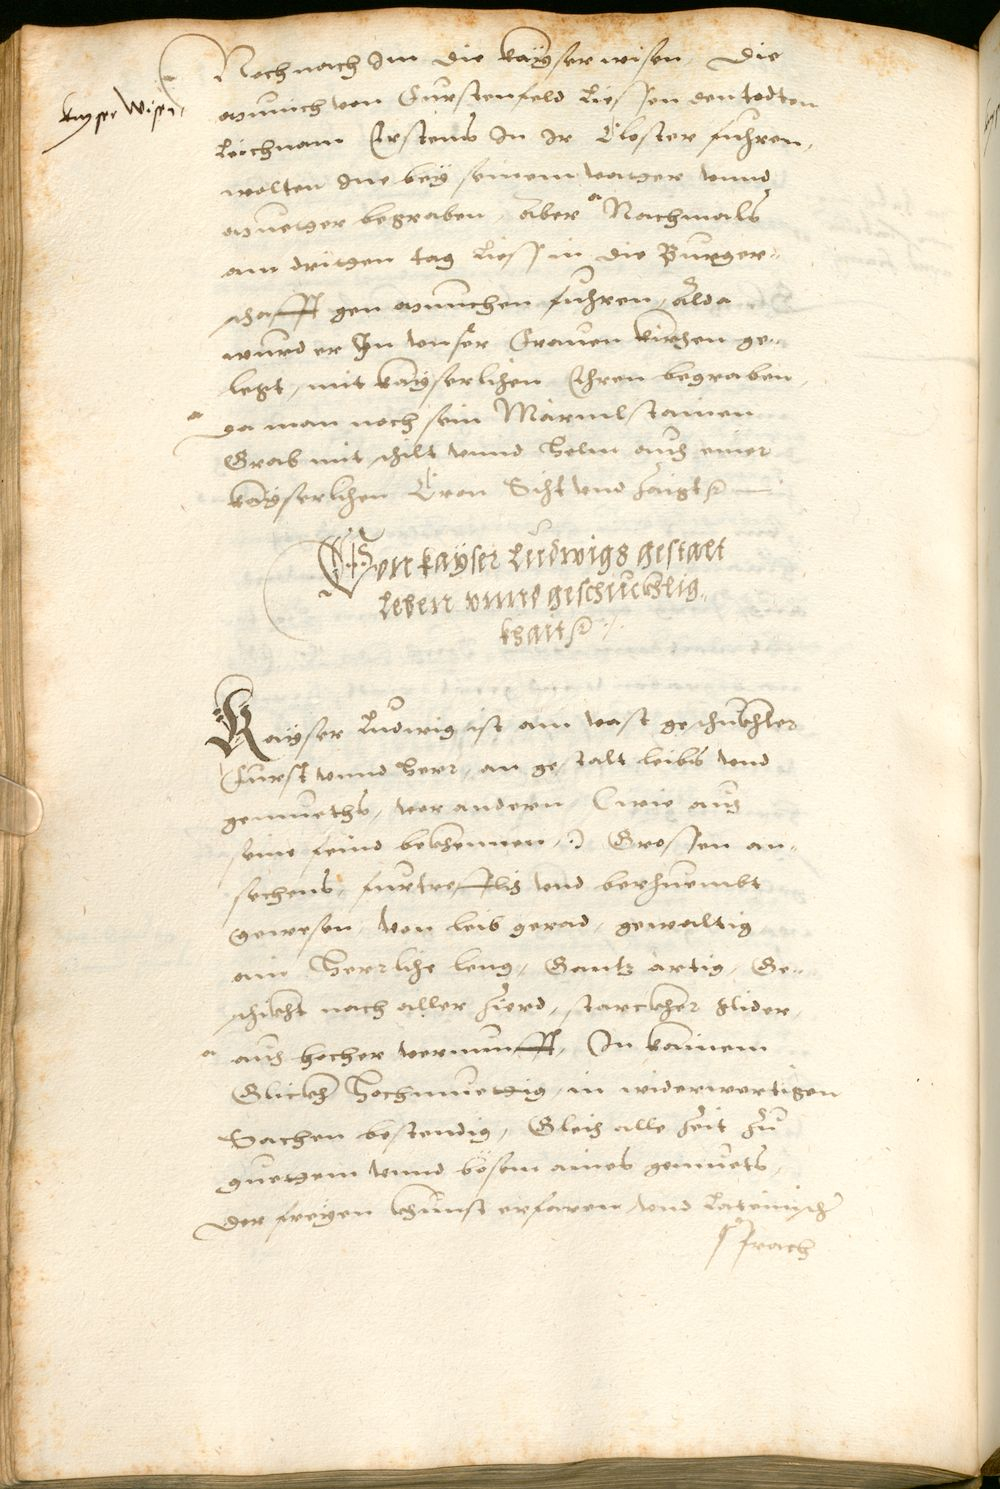 Noch nach Im die kayserwisen, Die
kayser Wisen,
Munich von Furstenfeld Liessen den todten
Leichnam Erstens In Ir Closter fuhren,
wolten Ine bey seinem vatter vnnd
Muetter begraben, Aber Nachmals
am dritten tag Liess in die Burger-
schafft gen Munchen fuhren, Alda
wurd er In vnser Frauen kirchen ge-
legt, mit kayserlichen Ehren begraben,
Da man noch sein Marmelstainen
Grab mit schilt vnnd Helm auch einer
kayserlichen Cron Sicht vnd zaigt
Von kayser Ludwigs gestalt
leben vnnd geschickhlig-
khait
Kayser Ludwig ist ain vast geschickhter
Furst vnnd Herr, an gestalt leibs vnd
gemueths, vor andern, (wie auch
seine feind bekhennen,) Grossen an-
sechens, furtrefflich vnd beruembt
gewesen, Von leib gerad, gewaltig
ain Herrliche leng, Gantz artig, Ge-
schikht nach aller zierd, starckher glider,
auch hocher vernunfft, In kainem
Glickh Hochmuettig, in widerwertigen
Sachen bestendig, Gleich alle zeit zu
guettem vnnd bösem aines gemuets,
Der freyen khunst erfaren, vnd Lateinisch
sprach